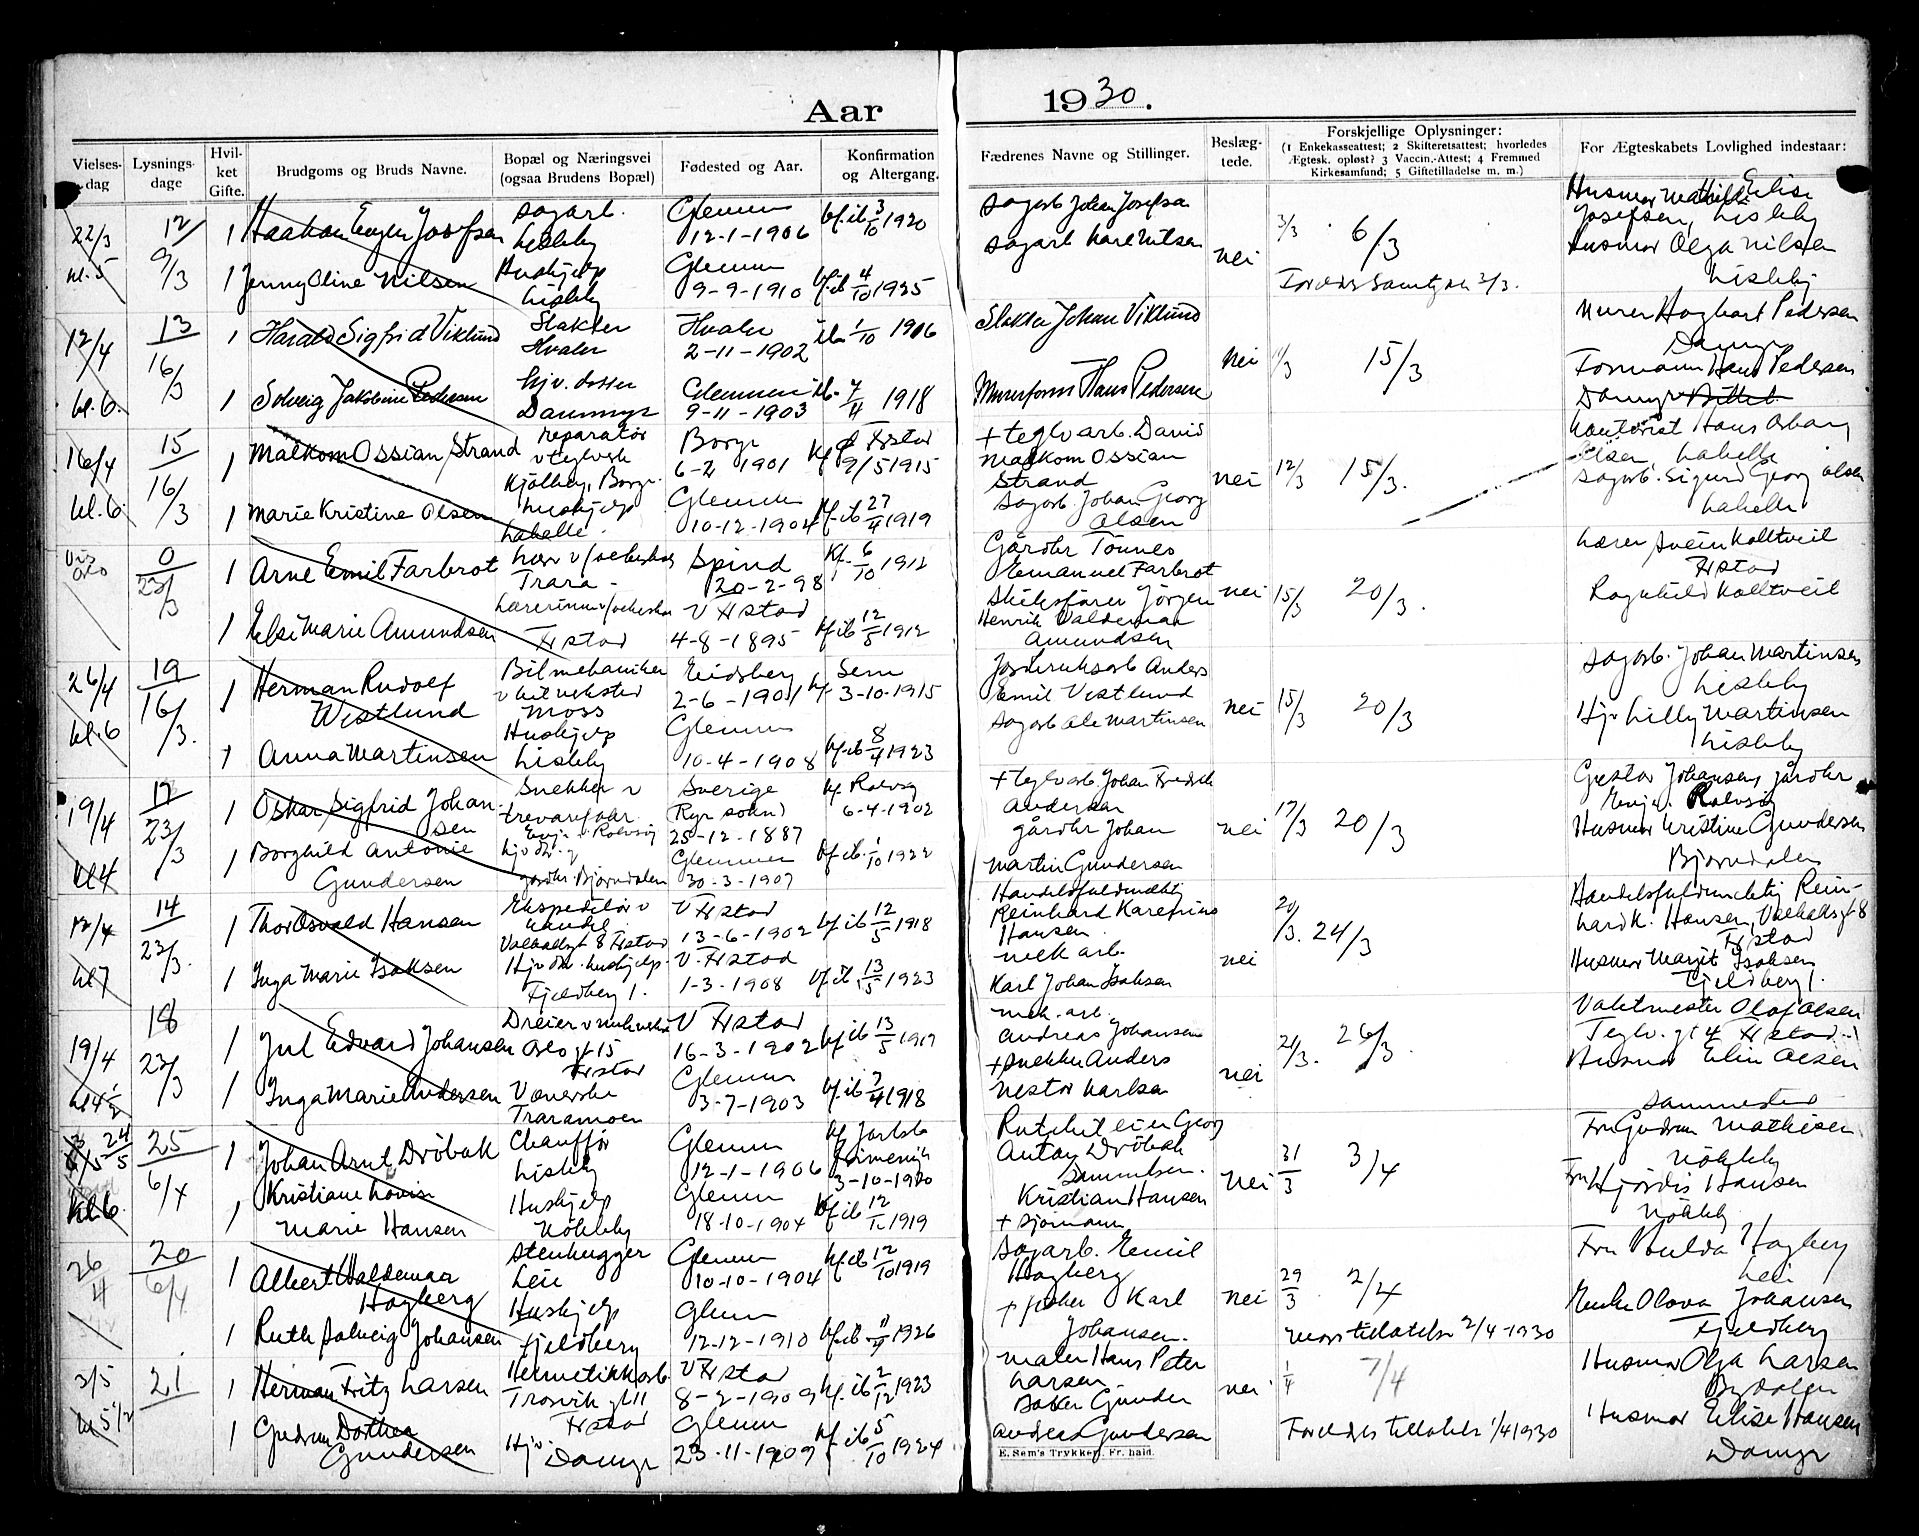 Aar
1930.
Vielses-
dag
Lysnings-
dage
Hvil-
ket
Gifte.
Brudgoms og Bruds Navne.
Bopæl og Næringsvei
(ogsaa Brudens Bopæl)
Fødested og Aar.
Konfirmation
og Altergang.
Fædrenes Navne og Stillinger.
Beslæg-
tede.
Forskjellige Oplysninger:
(1 Enkekasseattest; 2 Skifteretsattest; hvorledes
Ægtesk. opløst? 3 Vaccin.-Attest; 4 Fremmed
Kirkesamfund; 5 Giftetilladelse m. m.)
For Ægteskabets Lovlighed indestaar:
22/3
kl. 5
12/
9/3
1 Haakon Josefsen
sagarb.
Lisleby
Glemmen
12-1-1906
kf. ib 3/10 1920
sagarb Johan Josefsen
3/3
6/3
Husmor Elise
Josefsen, Lisleby
1 Jenny Oline Nilsen
Hushjelp
Lisleby
Glemmen
9-9-1910
kf. ib 4/10 1925
sagarb Kare Nilsen
nei
Husmor Olga Nilsen
Lisleby
12/4
kl. 6.
13
16/3
1 Harald Sigfrid Viklund
Slakter
Hvaler
Hvaler
2-11-1902
1/10
Slakter Johan Viklund
nei
15/3
Murer Hagbart Pedersen
Damyr
1 Solveig Jakobine Pedersen
hjv. datter
Dammyr
Glemmen
9-11-1903
1918
Murerform Hans Pedersen
Formann Hans Pedersen
Damyr
16/4
kl. 6.
15
16/3
1 Malkom Ossian Strand
reparatør
v teglverk
Kjølberg, Borge.
Borge
6-2 1901
9/5 1915
+ teglv arb. David
Malkom Ossian
Strand
nei
12/3
15/3.
Hans Oskar
Olsen Labelle
1 Marie Kristine Olsen
Hushjelp
Labelle.
Glemmen
10-12-1904
kf. ib 27/4 1919
sagarb. Johan Georg
Olsen
sagarb. Sigurd Georg Olsen
Labelle
0
23/3
1 Arne Emil Farbrot
Trara
Spind
20-2-98
kf. 6/10 1912
Gårdbr Tønnes
Emanuel Farbrot
nei
15/3
20/3.
Lærer Svein Koltveit
Frstad
1 Elsi Marie Amundsen
Frstad
V Frstad
4-8-1895
kf ib 12/5 1912
Skibsfører Jørgen
Henrik Valdemar
Amundsen
Ragnhild Koltveit
26/4
kl. 6
19
16/3.
1 Herman Rudolf
Westlund
Bilmekaniker
v bilverksted
Moss
Eidsberg
2-6-1901
Sem
kf 3-10-1915
Jordbruksarb Anders
Emil Vestlund
nei
15/3
20/3
sagarb. Johan Martinsen
Lisleby
1 Anna Martinsen
Hushjelp
Lisleby
Glemmen
10-4-1908
kf. ib 8/4 1923
sagarb Ole Martinsen
Hjv Lilly Martinsen
Lisleby
19/4
kl 4
17
23/3
1 Oskar Sigfrid Johan-
sen
Snekker v
trevarefabr
Rolvsøy
Sverige
(Ryr sokn)
25-12-1887
kf. Rolvsøy
6-4-1902
+ teglv arb Johan Fredrik
Andersen
nei
17/3
20/3
Gustav Johansen, gårdbr
Rolvsøy
1 Borghild Antonie
Gundersen
Bjørndalen
Glemmen
30-3-1907
kf. ib. 1/10 1922
gårdbr Johan
Martin Gundersen
Husmor Kristine Gundersen
Bjørndalen
12/4
kl 7
14
23/3.
1 Thor Osvald Hansen
Ekspeditør v
handel
Valhallsgt 8 Frstad
V Frstad
13-6-1902
kf ib 12/5 1918
Handelsfuldmektig
Reinhard Karelius
Hansen
nei
20/3.
24/3
Handelsfuldmektig Rein-
hard K. Hansen, Valhallsgt 8
Frstad
1 Inga Marie Isaksen
Hushjelp
Fjeldberg 1.
V. Frstad
1-3-1908
kf. ib. 13/5 1923
mek arb.
Karl Johan Isaksen
Husmor Margit Isaksen
Fjeldberg 1.
19/4
kl 4 1/2
18
23/3
1 Jul Edvard Johansen
Dreier v mek verksted
Oslo gt 15
Frstad
V Frstad
16-3-1902
kf ib 13/5 1917
mek. arb.
Andreas Johansen
nei
21/3.
26/3.
Vaktmester Olaf Olsen
Teglv. gt 4 Frstad
1 Inga Marie Andersen
Væverske
Traramoen
Glemmen
3-7-1903
kf. ib 7/4 1918
+ snekker Anders
Nestor Karlsen
Husmor Elin Olsen
sammested
24/5
kl 6.
25
6/4
1 Johan Arnt Drøbak
Chauffør
Lisleby
Glemmen
12-1-1906
3-10-1920
Georg
Anton Drøbak
nei
31/3
3/4
Fru Gudrun Mathisen
Nökleby
1 Kristiane Lovise
Marie Hansen
Hushjelp
Nökleby
Glemmen
18-10-1904
kf ib 12/ 1919
Kristian Hansen
+ sjømann
Fru Hjørdis Hansen
Nökleby
26/4
20
6/4
1 Albert Valdemar
Hagberg
Stenhugger
Leie
Glemmen
10-10-1904
kf. ib 12/10 1919
sagarb. Emil
Hagberg
nei
29/3
2/4
Fru Hulda Hagberg
Leie
1 Ruth Solveig Johansen
Hushjelp
Fjeldberg
Glemm
12-12-1910
1926
+ fisker Karl
Johansen.
Mors tillatelse 2/4-1930
Enke Olava Johansen
Fjeldberg
3/5
kl 5 1/2
21
1 Herman Fritz Larsen
Hermetikkarb
Trosvik gt 11
Frstad
V Frstad
8-2-1909
kf. ib 2/12 1923
maler Hans Peter
Larsen
nei
1/4
7/4
Husmor Olga Larsen
Bydalen
1 Gudrun Dorthea
Gundersen
Hjv.
Damyr
Glemm
23-11-1909
kf. ib 5/10 1924
Baker Gunder
Andreas Gundersen
Foreldres tillatelse 1/4 1930
Husmor Elise Hansen
Damyr
E. Sem's Trykkeri, Fr.hald.